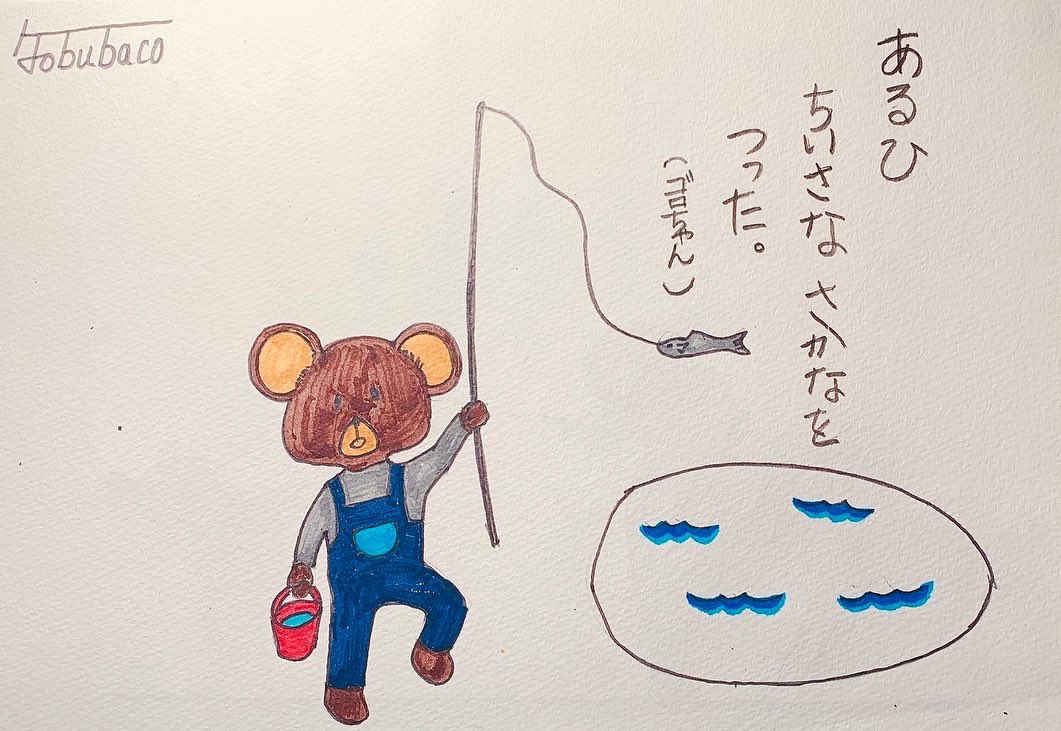 Tobubaco
あるひ
ちいさな さかなを
つった。
(ゴロちゃん)